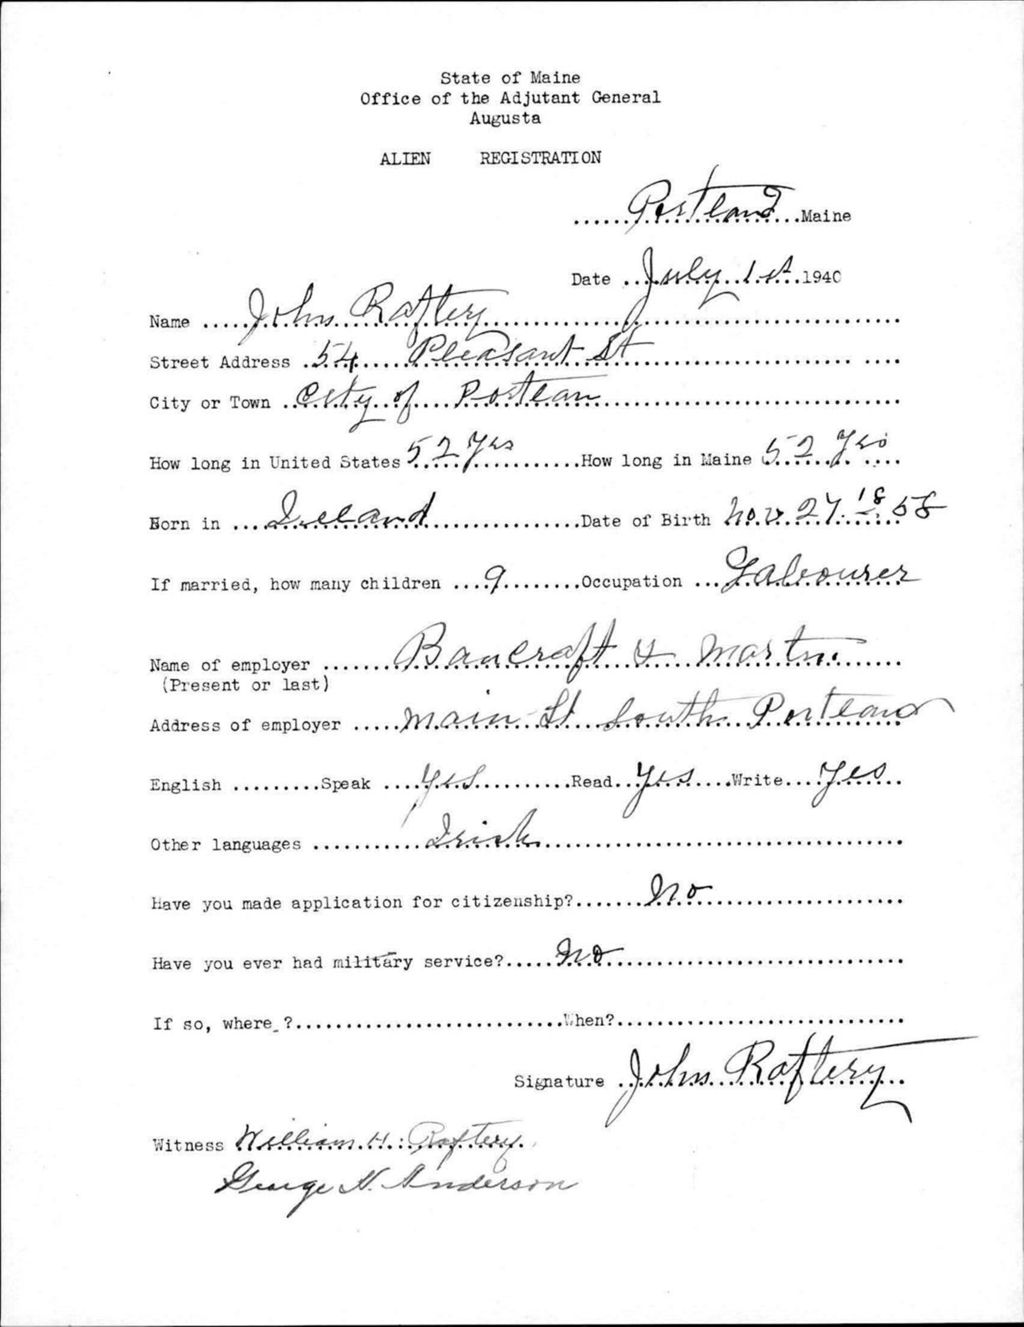 State of Maine
Office of the Adjutant General
Augusta
ALIEN REGISTRATION
Portland Maine
Date July 1st 1940
Name John Raftery
Street Address 54 Pleasant St
City or Town City of Portlan
How long in United States 52 Yrs How long in Maine 52 Yrs
Born in Ireland Date of Birth Nov. 27. 1858
If married, how many children 9 Occupation Labourer
Name of employer Bancraft & Martin
(Present or last)
Address of employer Main St South Portland
English Speak Yes Read Yes Write Yes
Other languages Irish
Have you made application for citizenship? No
Have you ever had military service? No
If so, where ? When?
Signature John Raftery
Witness William H. Raftery
George N. Anderson